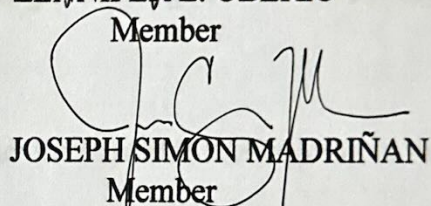 Member
JOSEPH SIMON MADRIÑAN
Member